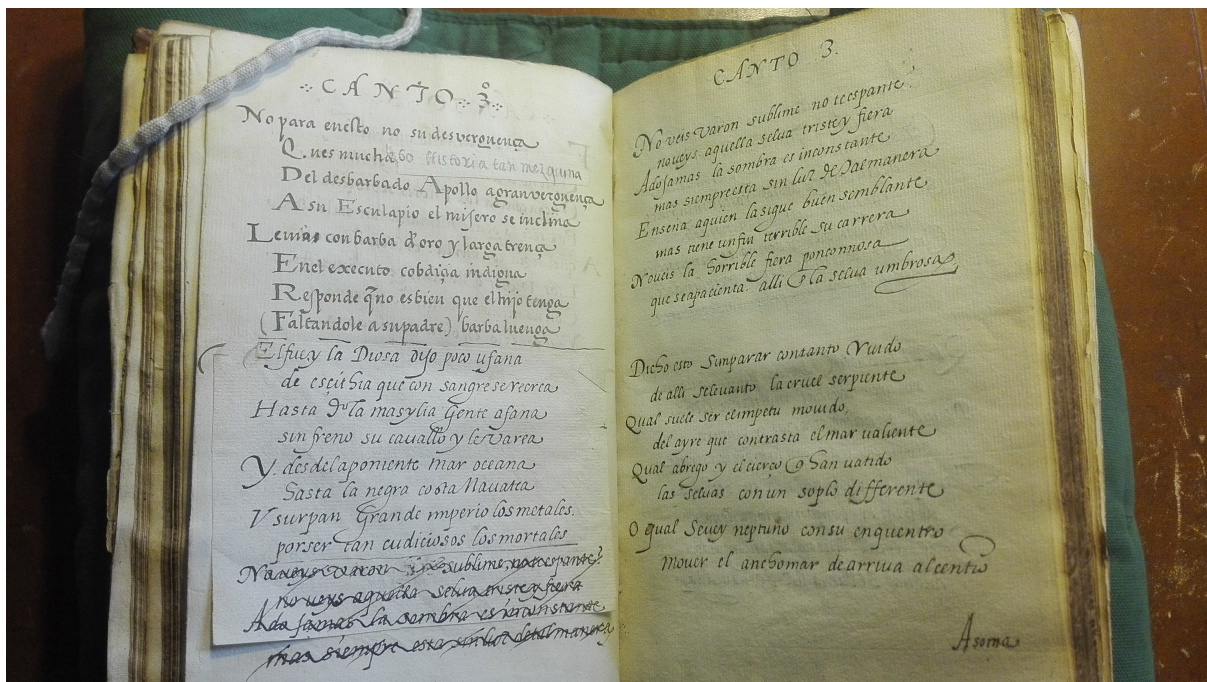 CANTO 3º
No para en esto no su desverguença
Q. ues mucha, go historia tan mezquina
Del desbarbado Apollo a gran verguença
A su Esculapio el misero se inclina
Levias con barba d'oro y larga trença
En el executo cobdiçia indigna
Responde q̃ no es bien que el hijo tenga
(Faltandole a su padre) barba luenga
El fuey la Diosa dijo poco ufana
de esçithia que con sangre se recrea
Hasta do la masylia gente afana
sin freno su cavallo y le varea
Y. desde la poniente mar oceana
hasta la negra costa Navatea
Vsurpan grande imperio los metales.
por ser tan cudiciosos los mortales
No veys varon sublime, no te espante?
no veys aquella selva triste y fiera
Ado jamas la sombra es inconstante
mas siempre esta sin luz de tal manera
CANTO 3.
No veis varon sublime no te espante.
no veys aquella selva triste y fiera
Ado jamas la sombra es inconstante
mas siempre esta sin luz de tal manera
Enseña a quien la sigue buen semblante
mas tiene un fin terrible su carrera
No veis la horrible fiera ponçonnosa
que se apacienta alli en la selva umbrosa
Dicho esto sin parar con tanto Ruido
de alli se levanto la cruel serpiente
Qual suele ser el impetu movido,
del ayre que contrasta el mar valiente
Qual abrego y el cierço q̃ han vatido
las selvas con un soplo differente
O qual Reuey neptuno con su enquentro
mover el ancho mar de arriva al centro
Asoma